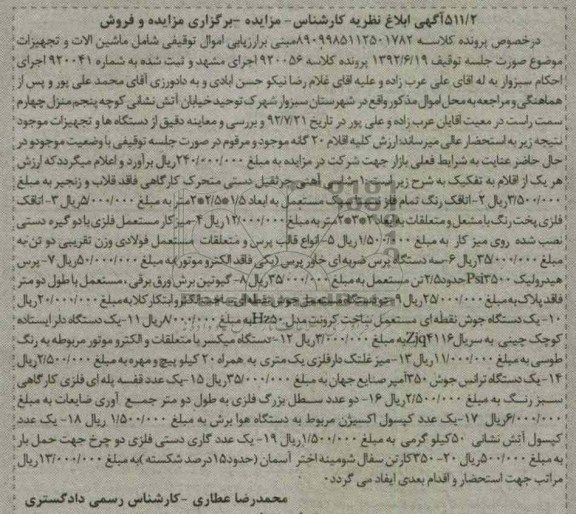 ۵۱۱/۲آگهی ابلاغ نظریه کارشناس- مزایده -برگزاری مزایده و فروش
درخصوص پرونده کلاسه ۸۹۰۹۹۸۵۱۱۲۵۰۱۷۸۲مبنی برارزیابی اموال توقیفی شامل ماشین الات و تجهیزات
موضوع صورت جلسه توقیف ۱۳۹۲/۶/۱۹ پرونده کلاسه ۹۲۰۰۵۶ اجرای مشهد و ثبت شده به شماره ۹۲۰۰۴۱ اجرای
احکام سبزوار به له اقای علی عرب زاده و علیه اقای غلام رضا نیکو حسن ابادی و به دادورزی آقای محمد علی پور و پس از
هماهنگی و مراجعه به محل اموال مذکور واقع در شهرستان سبزوار شهرک توحید خیابان آتش نشانی کوچه پنجم منزل چهارم
سمت راست در معیت آقایان عرب زاده و علی پور در تاریخ ۹۲/۷/۲۱ و بررسی و معاینه دقیق از دستگاه ها و تجهیزات موجود
نتیجه زیر به استحضار عالی میرساند:ارزش کلیه اقلام ۲۰ گانه موجود و مرقوم در صورت جلسه توقیفی با وضعیت موجود و در
حال حاضر عنایت به شرایط فعلی بازار جهت شرکت در مزایده به مبلغ ۲۴۰/۰۰۰/۰۰۰ریال برآورد و اعلام میگردد که ارزش
هر یک از اقلام به تفکیک به شرح زیر است:۱-شاسی آهنی جرثقیل دستی متحرک کارگاهی فاقد قلاب و زنجیر به مبلغ
۳/۵۰۰/۰۰۰ریال ۲-اتاقک رنگ تمام فلزی مستعمل به ابعاد ۱/۵*۲/۵*۲متر به مبلغ ۵/۰۰۰/۰۰۰ریال ۳-اتاقک
فلزی پخت رنگ با مشعل و متعلقات به ابعاد ۳*۳*۲متر به مبلغ ۱۲/۰۰۰/۰۰۰ریال ۴-میز کار مستعمل فلزی با دو گیره دستی
نصب شده روی میز کار به مبلغ ۱/۵۰۰/۰۰۰ریال ۵-انواع قالب پرس و متعلقات مستعمل فولادی وزن تقریبی دو تن به
مبلغ ۳۵/۰۰۰/۰۰۰ریال ۶-سه دستگاه پرس ضربه ای خاور پرس (یکی فاقد الکترو موتور)به مبلغ ۵۰/۰۰۰/۰۰۰ریال ۷-پرس
هیدرولیک Psi۳۵۰۰حدود۲/۵ تن مستعمل به مبلغ ۳۵/۰۰۰/۰۰۰ریال ۸-گیوتین برش ورق برقی ،مستعمل با طول دو متر
فاقد پلاک به مبلغ ۲۵/۰۰۰/۰۰۰ریال ۹-دو دستگاه مستعمل جوش نقطه ای ساخت الکترو ابتکار کلا به مبلغ ۲۰/۰۰۰/۰۰۰ریال
۱۰-یک دستگاه جوش نقطه ای مستعمل ساخت کرونت مدل Hz۵۰به مبلغ ۸/۰۰۰/۰۰۰ریال ۱۱-یک دستگاه دلر ایستاده
کوچک چینی به سریال Zjq۴۱۱۶به مبلغ ۳/۰۰۰/۰۰۰ریال ۱۲-دستگاه میکسر با متعلقات و الکترو موتور مربوطه به رنگ
طوسی به مبلغ ۱۱/۰۰۰/۰۰۰ریال ۱۳-میز غلتک دار فلزی یک متری به همراه ۲۰ کیلو پیچ و مهره به مبلغ ۲/۵۰۰/۰۰۰ریال
۱۴-یک دستگاه ترانس جوش ۳۵۰آمپر صنایع جهان به مبلغ ۳۵/۰۰۰/۰۰۰ریال ۱۵-یک عدد قفسه پله ای فلزی کارگاهی
سبز رنگ به مبلغ ۲/۵۰۰/۰۰۰ریال ۱۶- دو عدد سطل بزرگ فلزی به طول دو متر جمع آوری ضایعات به مبلغ
۶/۰۰۰/۰۰۰ریال ۱۷-یک عدد کپسول اکسیژن مربوط به دستگاه هوا برش به مبلغ ۱/۵۰۰/۰۰۰ ریال ۱۸- یک عدد
کپسول آتش نشانی ۵۰کیلو گرمی به مبلغ ۱/۵۰۰/۰۰۰ریال ۱۹-یک عدد گاری دستی فلزی دو چرخ جهت حمل بار
به مبلغ ۵۰۰/۰۰۰ریال ۲۰-۳۵۰کارتن سفال شومینه اختر آسمان (حدود۱۵درصد شکسته )به مبلغ ۱۳/۰۰۰/۰۰۰ریال
مراتب جهت استحضار و اقدام بعدی ایفاد می گردد.
محمدرضا عطاری -کارشناس رسمی دادگستری